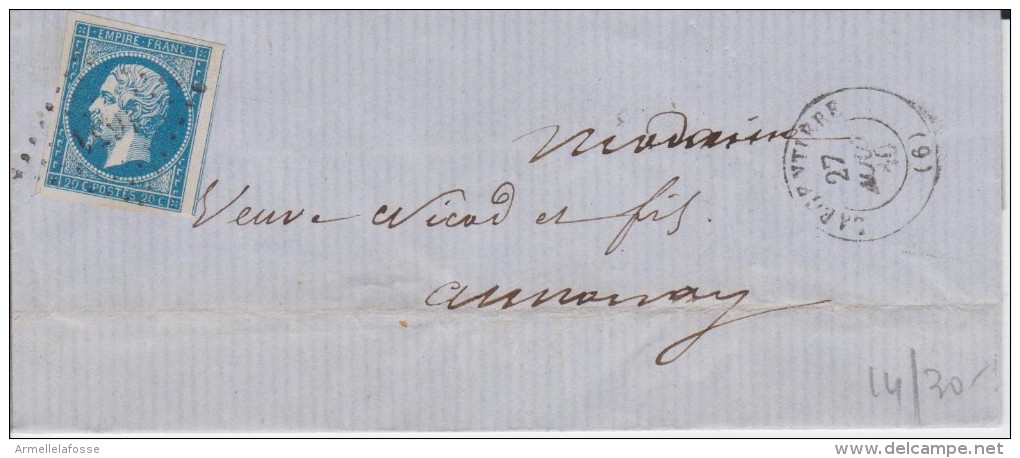 EMPIRE · FRANC ·
20 C POSTES 20 C
Madame
Veuve Nicod et fils.
annonay
27
(9)
14/30
Armellelafosse
www.delcampe.net